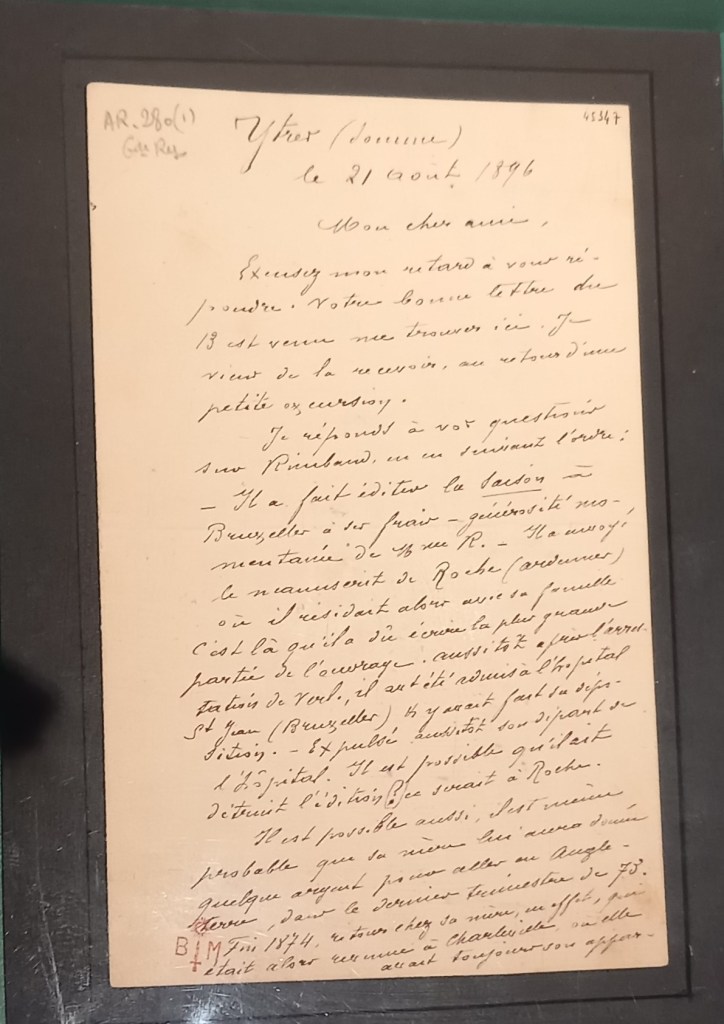 AR. 280(1)
45347
Ytres (Somme)
le 21 août 1896
Mon cher ami,
Excusez mon retard à vous ré-
pondre. Votre bonne lettre du
13 est venu me trouver ici. Je
viens de la recevoir, au retour d'une
petite excursion.
Je réponds à vos questions
sur Rimbaud, en en suivant l'ordre :
— Il a fait éditer la Saison à
Bruxelles à ses frais — générosité mo-
mentanée de Mme R. — Il a envoyé
le manuscrit de Roche (Ardennes)
où il résidait alors avec sa famille
C'est là qu'il a dû écrire la plus grande
partie de l'ouvrage. Aussitôt après l'arres-
tation de Verl., il a été admis à l'hôpital
St Jean (Bruxelles) Il y avait fait sa dépo-
sition. — Expulsé aussitôt son départ de
l'hôpital. Il est possible qu'il ait
détruit l'édition (?) ce serait à Roche.
Il est possible aussi, il est même
probable que sa mère lui aura donné
quelque argent pour aller en Angle-
terre, dans le dernier trimestre de 73.
Fin 1874, retour chez sa mère, en effet, qui
était alors revenue à Charleville, où elle
avait toujours son appar-
BM